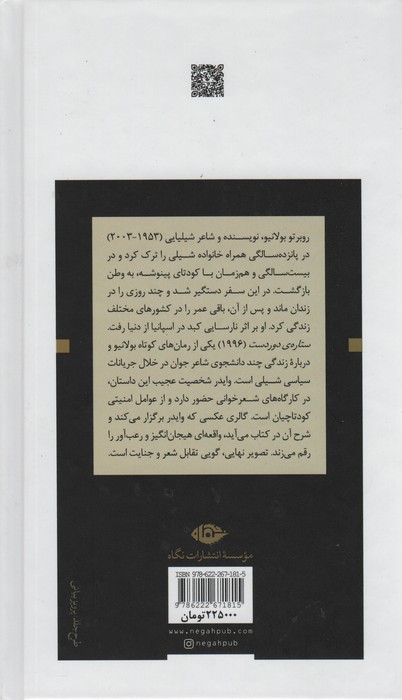 روبرتو بولانیو، نویسنده و شاعر شیلیایی (۱۹۵۳-۲۰۰۳)
در پانزده‌سالگی همراه خانواده شیلی را ترک کرد و در
بیست‌سالگی و هم‌زمان با کودتای پینوشه، به وطن
بازگشت. در این سفر دستگیر شد و چند روزی را در
زندان ماند و پس از آن، باقی عمر را در کشورهای مختلف
زندگی کرد. او بر اثر نارسایی کبد در اسپانیا از دنیا رفت.
ستاره‌ی دوردست (۱۹۹۶) یکی از رمان‌های کوتاه بولانیو و
درباره‌ زندگی چند دانشجوی شاعر جوان در خلال جریانات
سیاسی شیلی است. وایدر شخصیت عجیب این داستان،
در کارگاه‌های شعرخوانی حضور دارد و از عوامل امنیتی
کودتاچیان است. گالری عکسی که وایدر برگزار می‌کند و
شرح آن در کتاب می‌آید، واقعه‌ای هیجان‌انگیز و رعب‌آور را
رقم می‌زند. تصویر نهایی، گویی تقابل شعر و جنایت است.
مؤسسهٔ انتشارات نگاه
ISBN 978-622-267-181-5
9 786222 671815
۲۲۵۰۰۰ تومان
www.negahpub.com
negahpub
طرح جلد: پرویز بیانی